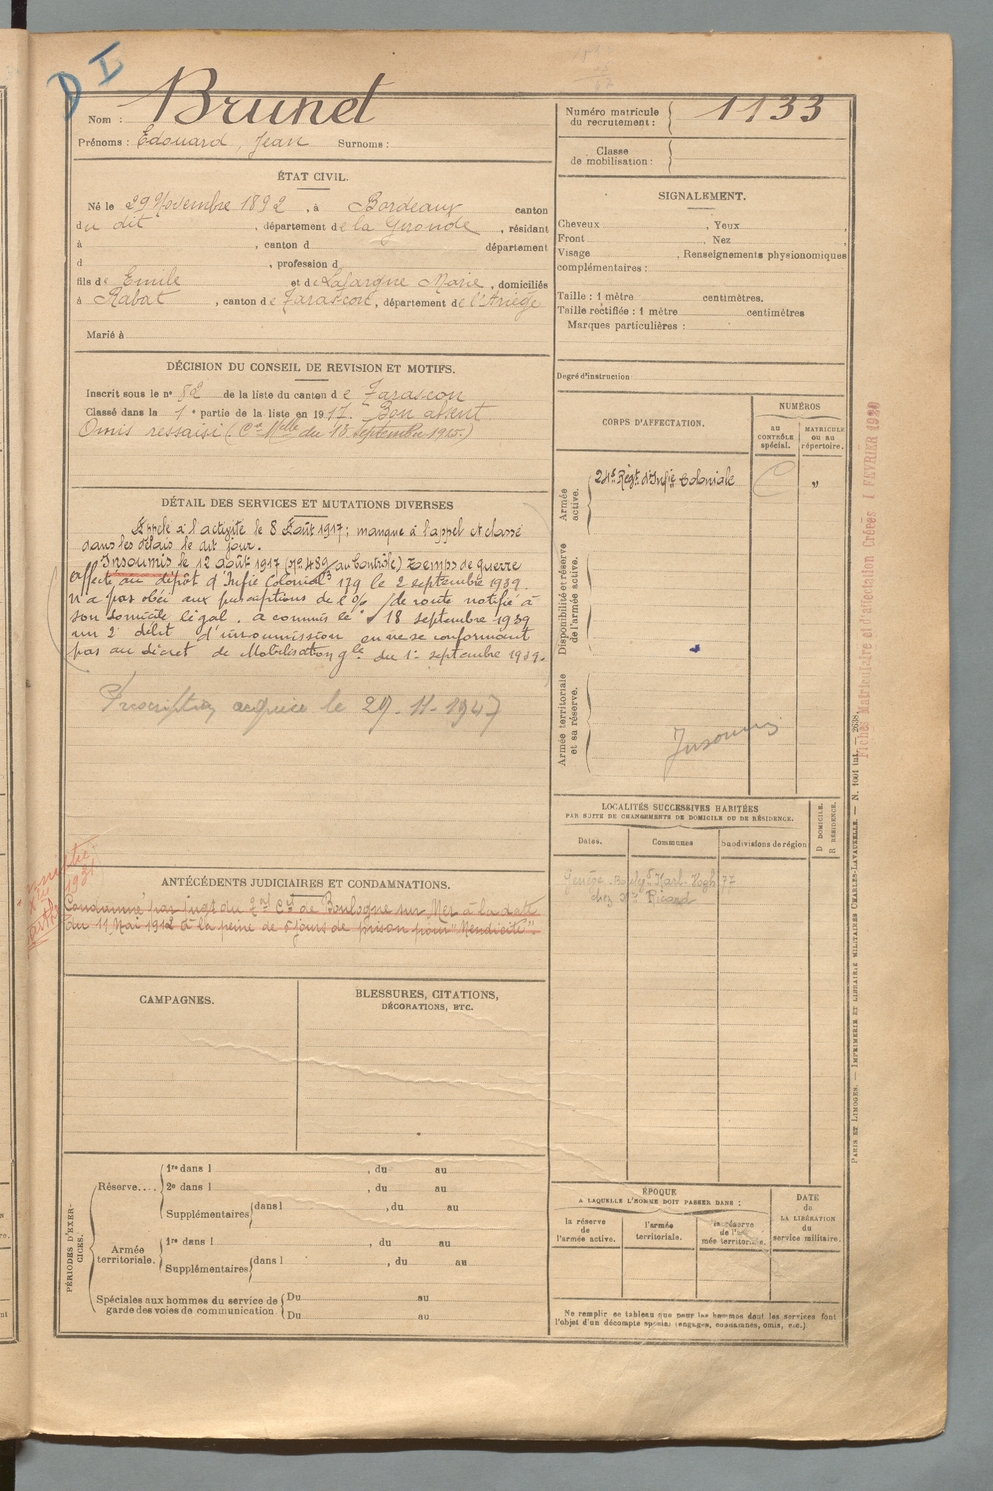 D I
Nom : Brunet
Prénoms : Edouard, Jean Surnoms :
Numéro matricule du recrutement : 1133
Classe de mobilisation :
ÉTAT CIVIL.
Né le 29 Novembre 1892, à Bordeaux canton
du dit, département de la Gironde, résidant
à , canton d département
d , profession d
fils de Emile et de Lafargue Marie, domiciliés
à Rabat, canton de Tarascon, département de l'Ariège
Marié à
SIGNALEMENT.
Cheveux , Yeux ,
Front , Nez ,
Visage , Renseignements physionomiques
complémentaires :
Taille : 1 mètre centimètres.
Taille rectifiée : 1 mètre centimètres
Marques particulières :
Degré d'instruction
DÉCISION DU CONSEIL DE REVISION ET MOTIFS.
Inscrit sous le n° 52 de la liste du canton de Tarascon
Classé dans la 1e partie de la liste en 1917. Bon absent
Omis ressaisi (Cre Mlle du 13 septembre 1915.)
DÉTAIL DES SERVICES ET MUTATIONS DIVERSES
Appelé à l'activité le 8 Août 1917; manque à l'appel et classé
dans les délais le dit jour.
Insoumis le 12 août 1917 (no 489 au Contrôle) temps de guerre
affecté au dépôt d'Infie Coloniale 179 le 2 septembre 1939.
n'a pas obéi aux prescriptions de l'o/ de route notifié à
son domicile légal. a commis le 18 septembre 1939
un 2e délit d'insoumission en ne se conformant
pas au décret de Mobilisation gle du 1er septembre 1939.
Prescription acquise le 29-11-1947
CORPS D'AFFECTATION.
NUMÉROS
au CONTRÔLE spécial.
MATRICULE ou au répertoire.
Armée active.
24e Régt d'Infie Coloniale
"
Disponibilité et réserve de l'armée active.
Armée territoriale et sa réserve.
Insoumis
LOCALITÉS SUCCESSIVES HABITÉES
PAR SUITE DE CHANGEMENTS DE DOMICILE OU DE RÉSIDENCE.
D DOMICILE.
R RÉSIDENCE.
Dates.
Communes
Subdivisions de région
Genève Boulegd Karl-Vogh 77
chez Me Ricard
ANTÉCÉDENTS JUDICIAIRES ET CONDAMNATIONS.
Condamné par jugt du Cel de Boulogne sur Mer à la date
du 11 Mai 1912 à la peine de 5 jours de prison pour "Mendicité".
CAMPAGNES.
BLESSURES, CITATIONS,
DÉCORATIONS, ETC.
PÉRIODES D'EXERCICES.
Réserve....
1re dans l , du au
2e dans l , du au
Supplémentaires dans l , du au
Armée territoriale.
1re dans l , du au
Supplémentaires dans l , du au
Spéciales aux hommes du service de
garde des voies de communication.
Du au
Du au
ÉPOQUE
A LAQUELLE L'HOMME DOIT PASSER DANS :
la réserve de l'armée active.
l'armée territoriale.
la réserve de l'armée territoriale.
DATE de LA LIBÉRATION du service militaire.
Ne remplir ce tableau que pour les hommes dont les services font
l'objet d'un décompte spécial (engagés, condamnés, omis, etc.).
PARIS ET LIMOGES. — IMPRIMERIE ET LIBRAIRIE MILITAIRES CHARLES-LAVAUZELLE. — N. 1001 int. — 2638.
Fiches Matriculaire et d'affectation Créées 1 FÉVRIER 1920